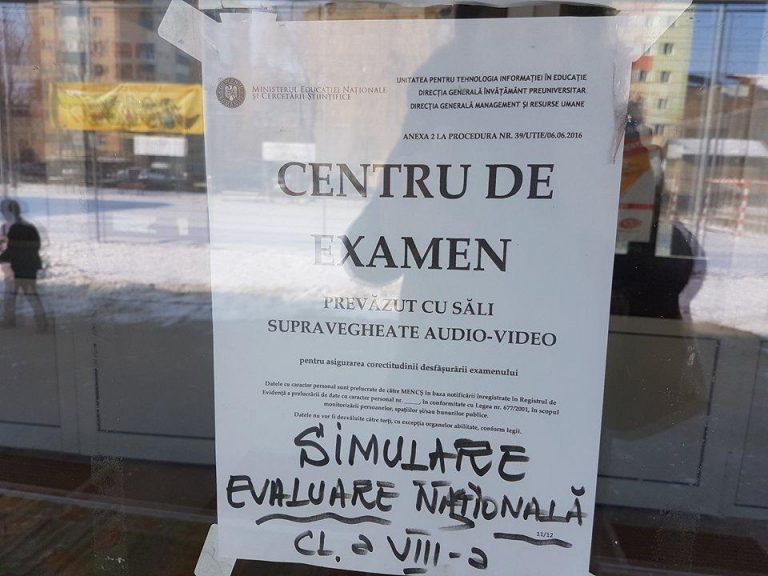 MINISTERUL EDUCAȚIEI NAȚIONALE
ȘI CERCETĂRII ȘTIINȚIFICE
UNITATEA PENTRU TEHNOLOGIA INFORMAȚIEI ÎN EDUCAȚIE
DIRECȚIA GENERALĂ ÎNVĂȚĂMÂNT PREUNIVERSITAR
DIRECȚIA GENERALĂ MANAGEMENT ȘI RESURSE UMANE
ANEXA 2 LA PROCEDURA NR. 39/UTIE/06.06.2016
CENTRU DE
EXAMEN
PREVĂZUT CU SĂLI
SUPRAVEGHEATE AUDIO-VIDEO
pentru asigurarea corectitudinii desfășurării examenului
Datele cu caracter personal sunt prelucrate de către MENCȘ în baza notificării înregistrate în Registrul de
Evidență a prelucrării de date cu caracter personal nr. _____, în conformitate cu Legea nr. 677/2001, în scopul
monitorizării persoanelor, spațiilor și/sau bunurilor publice.
Datele nu vor fi dezvăluite către terți, cu excepția organelor abilitate, conform legii.
SIMULARE
EVALUARE NAȚIONALĂ
11/12
CL. a VIII-a